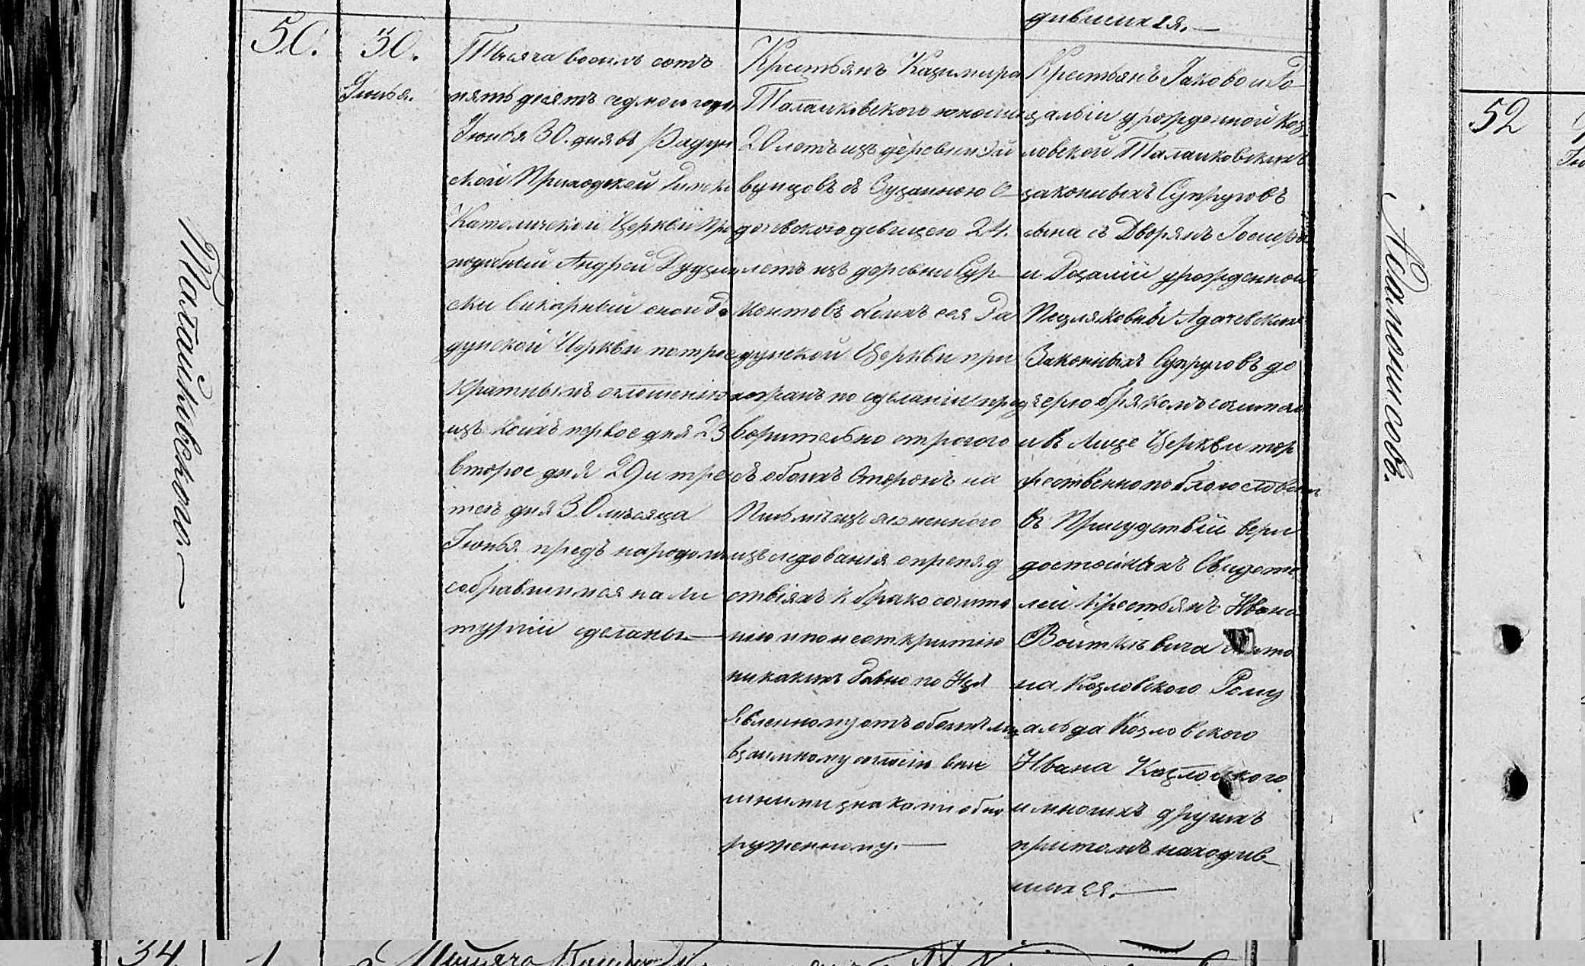 дившихся.—
50.
30.
Іюнья.
Тысяча восемь сотъ
пять десятъ седмого года
Іюнья 30. дня въ Радун
ской Приходской Римско
Католической Церкви Пре
подобный Андрей Дудзин
ски викарный оной Ра
дунской Церкви по трое
кратнымъ оглошению
изъ коихъ первое дня 23
второе дня 29 и тре
тее дня 30 мѣсяца
Іюнья предъ народомъ
собравшимся на Ли
тургіи сделаны—
Крестьянъ Казимира
Талашковского юношу
20 летъ изъ деревни
вунцовъ съ Зузанною О
дочевского девицею 24.
летъ изъ деревни Сур
контовъ обоихъ сея Ра
дунской Церкви при
хожанъ по сделаніи пред
варительно строгого
съ обоихъ сторонъ на
Письмѣ изъясненного
изследованія о препяд
ствіяхъ к бракосочита
нию и по неоткрытию
никакихъ равно по Изъ
явленному отъ обоихъ лиц
взаимному согласию вне
шними знаками обна
руженному.—
Крестьянъ Якова и Ро
заліи урожденной Коз
ловской Талашковскихъ
законныхъ Супруговъ
сына съ Дворянъ Іосифа
и Розаліи урожденной
Адачевскихъ
Законныхъ Супруговъ до
черю бракомъ сочитал
и въ Лице Церкви тор
жественно поблагословил
въ Присудствіи веры
достойныхъ Свидете
лей Крестьянъ Ивана
Войткевича
на Козловского Рому
альда Козловского
Ивана Козловского
и многихъ другихъ
притомъ находив
шихся.—
Талашковского.—
52
34
1
Тысяча